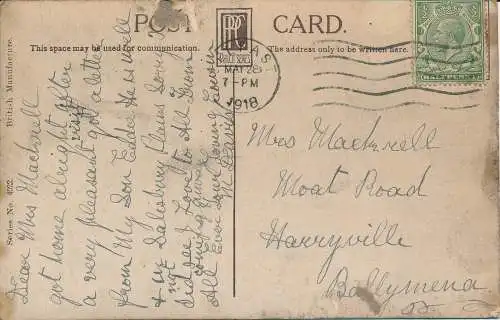 POST CARD.
This space may be used for communication.
The address only to be written here.
British Manufacture.
Series No. 622.
HALFPENNY
BELFAST
MAY 28
7-PM
1918
Dear Mrs Macknell
got home alright after
a very pleasant visit got a letter
from My Son Eddie He is well
& in Salisbury Plains
Love to All from
All
M Davis
Mrs Macknell
Moat Road
Harryville
Ballymena